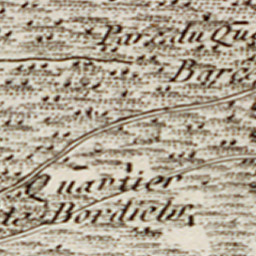 Parc du Qu
Barc
Quartier
de Bordiehr